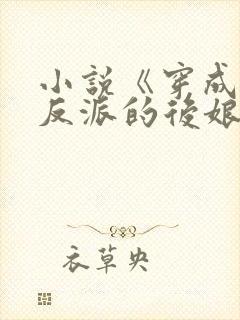 小說《穿成
反派的後娘
衣草央